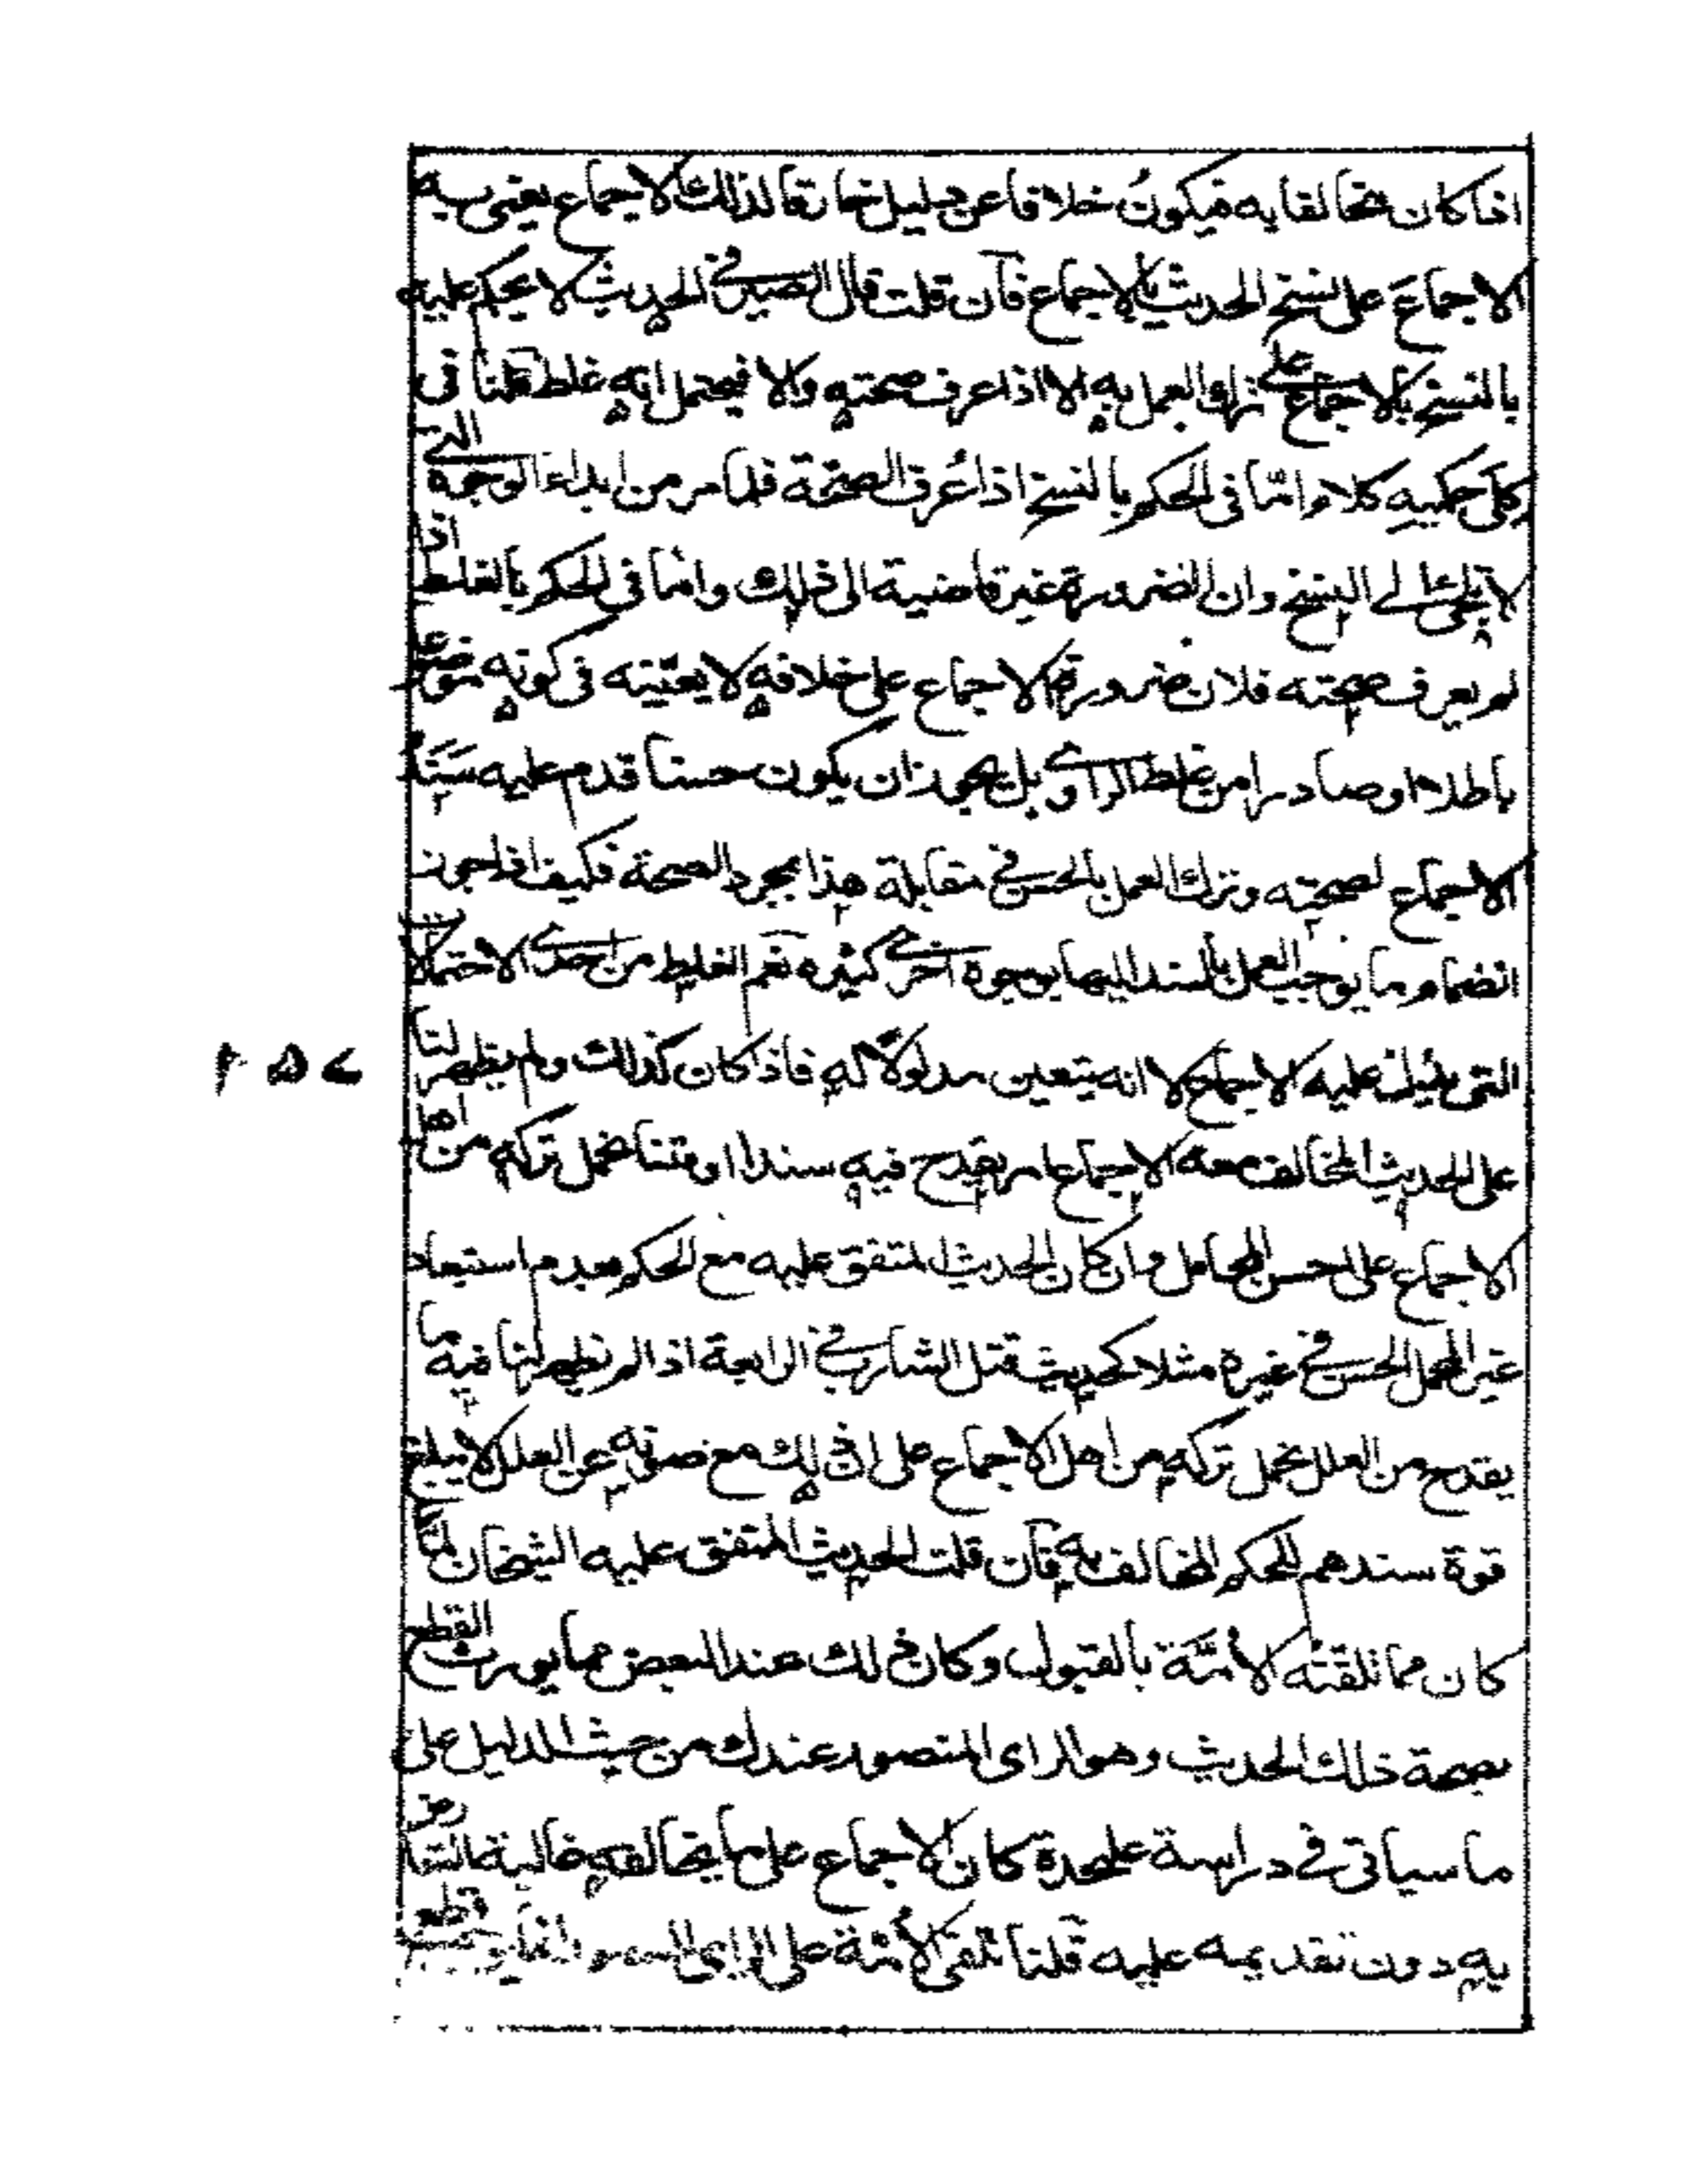 اذا كان مخالفا به فيكون خلافا عن دليل خارقا لذلك الاجماع يعنى به
الاجماعَ على نسخ الحديث بالاجماع فان قلت قال الصيرفي الحديث لا يحكم عليه
بالنسخ بالاجماع على ترك العمل به الا اذا عرف صحته والا فيحتمل انه غلط قلنا فى
كلى حكميه كلام امّا فى الحكم بالنسخ اذا عُرف الصحّة فلما مر من ابداء الوجوه التي
لا تلجئ الى النسخ وان الضرورة غير قاضية الى ذلك واما فى الحكم بالغلط اذا
لم يعرف صحته فلان ضرورة الاجماع على خلافه لا يعيّنه فى كونه موضوعا
باطلا او صادرا من غلط الراوي بل يجوز ان يكون حسنا قدم عليه سَنَدُ
الاجماع لصحته وترك العمل بالحسن في مقابلة هذا بمجرد الصحة فكيف اذا جوز
انضمام ما يوجب العمل بالسند اليها بوجوه اخرى كثيره نعم الغلط من احدى الاحتمالات
التى عليه الاجماع لا انه يتعين مدلولا له فاذا كان كذلك ولم يظهر لنا
على الحديث المخالف معه الاجماع امر يقدح فيه سندا او متنا نحمل تركه من اهل
الاجماع على احسن المحامل وان كان الحديث المتفق عليه مع الحكم بعدم استبعاد
غير المحمل الحسن في غيره مثلا كحديث قتل الشارب في الرابعة اذا لم يظهر لنا فيه ما
يقدح من العلل نحمل تركه من اهل الاجماع على ان ذلك مع صونه عن العلل لا يبلغ
قوة سندهم للحكم المخالف به فان قلت الحديث المتفق عليه الشيخان لمّا
كان مما تلقته الأمّة بالقبول وكان ذلك عند البعض مما يورث القطع
بصحة ذلك الحديث وهو الراى المنصور عندك من حيث الدليل على
ما سياتى في دراسة علحدة كان الاجماع على ما يخالفه غالبة التعارض
به دون تقديمه عليه قلنا تلقى الأمّة على الراى قطع
٢٥٧